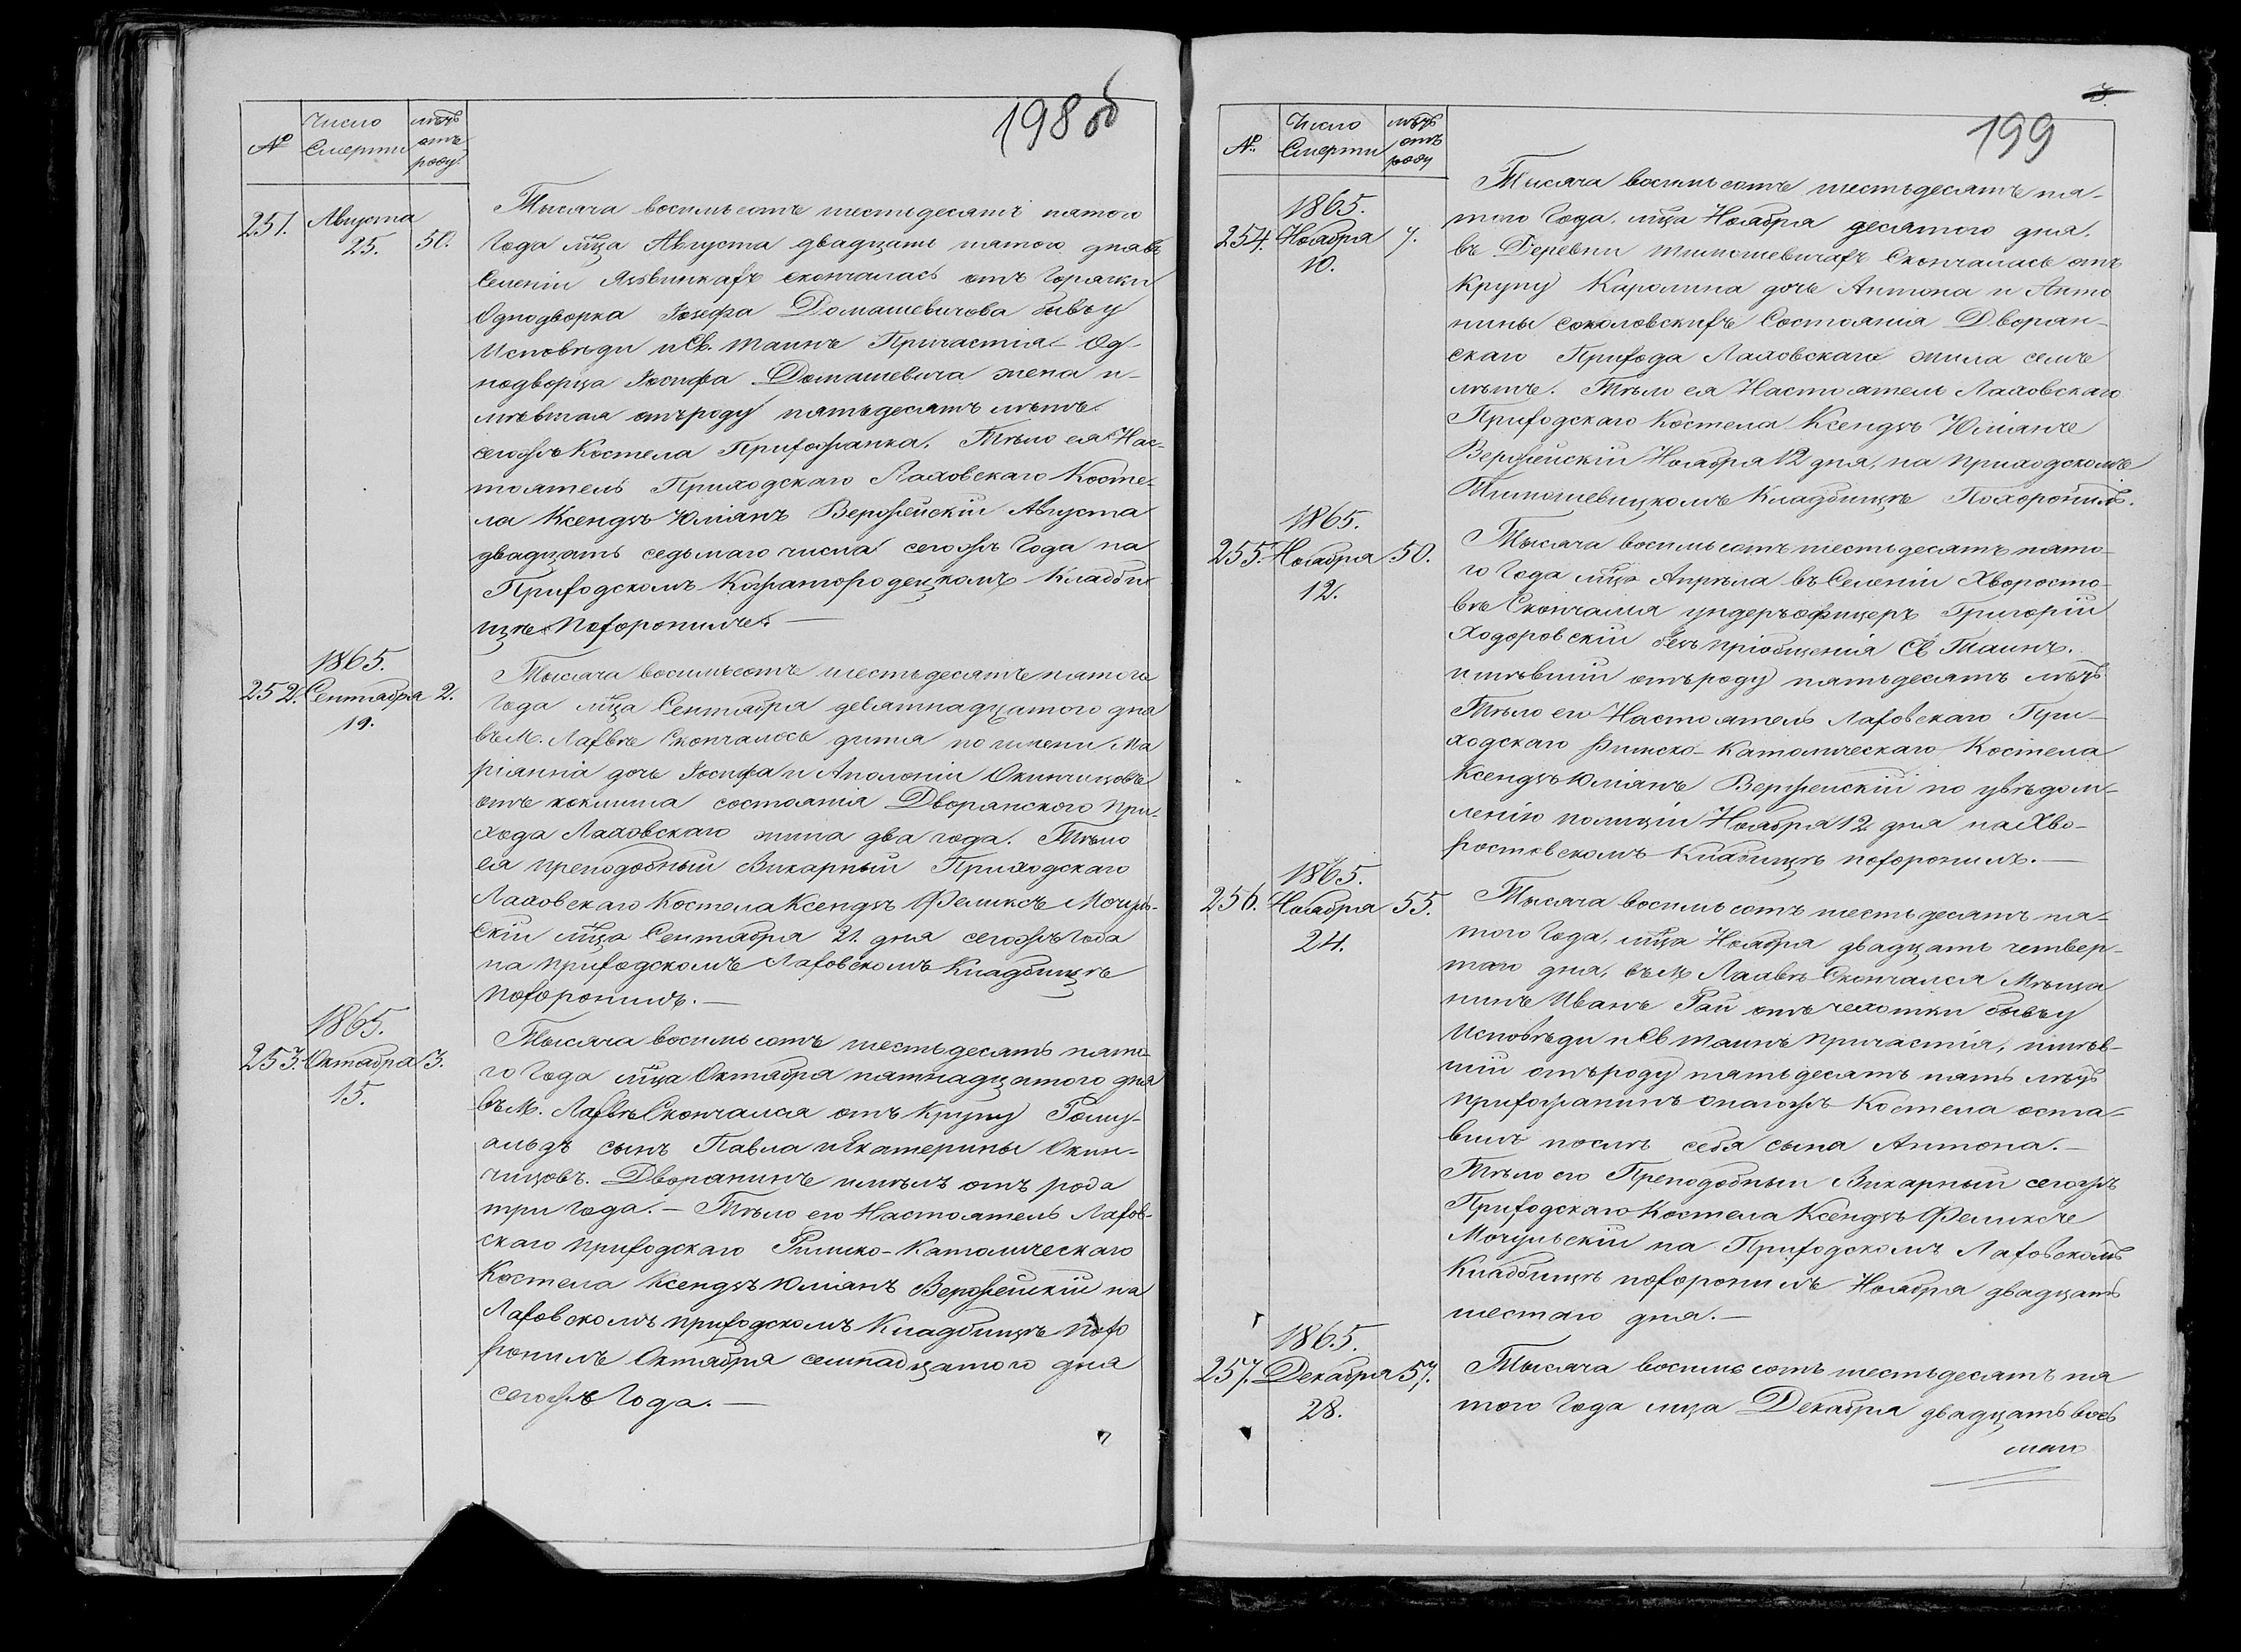 198 об
№
Число
Смерти
лѣтъ
отъ
роду
251.
Августа
25.
50.
Тысяча восимьсотъ шестьдесятъ пятого
Года мца Августа двадцать пятого дня въ
Селеніи скончалась отъ Горячки
Однодворка Іозефа Домашевичова бывъ у
Исповѣди и Св. таинъ Причастія Од-
нодворца Іосифа Домашевича жена и-
мѣвшая отъ роду пятьдесятъ лѣтъ.
сегожъ Костела Прихожанка. Тѣло ея Нас-
тоятель Приходскаго Лаховскаго Косте-
ла Ксендзъ Юліянъ Вержейскій Августа
двадцать седьмаго числа сегожъ Года на
Приходскомъ Кожангородецкомъ Кладби-
щѣ Похоронилъ. —
1865.
252. Сентября 2.
19.
Тысяча восимьсотъ шестьдесятъ пятого
Года мца Сентября девятнадцатого дня
въ М. Лахвѣ Скончалось дитя по имени Ма
ріянна дочь Іосифа и Аполоніи Окинчицовъ
отъ коклюша состоянія Дворянского При-
хода Лаховскаго жила два года. Тѣло
ея преподобный Викарный Приходскаго
Лаховскаго Костела Ксендзъ Феликсъ Мочуль-
скій мца Сентября 21. дня сегожъ Года
на приходскомъ Лаховскомъ Кладбищѣ
Похоронилъ. —
1865.
253. Октября 3.
15.
Тысяча восимьсотъ шестьдесятъ пято-
го Года мца Октября пятнадцатого дня
въ М. Лахвѣ Скончался отъ Крупу Рому-
альдъ сынъ Павла и Екатерины Окин-
чицовъ. Дворянинъ имѣлъ отъ рода
три Года. — Тѣло его Настоятель Лахов-
скаго приходскаго Римско-Католическаго
Костела Ксендзъ Юліянъ Вержейскій на
Лаховскомъ приходскомъ Кладбищѣ похо
ронилъ Октября семнадцатого дня
сегожъ Года. —
199
№
Число
Смерти
лѣтъ
отъ
роду
1865.
254. Ноября 7.
10.
Тысяча восимьсотъ шестьдесятъ пя-
того Года, мца Ноября десятого дня.
въ Деревни Тимошевичахъ Скончалась отъ
Крупу Каролина дочь Антона и Анто
нины Соколовскихъ Состоянія Дворян-
скаго Прихода Лаховскаго жила семь
лѣтъ. Тѣло ея Настоятель Лаховскаго
Приходскаго Костела Ксендзъ Юліянъ
Вержейскій Ноября 12 дня, на приходскомъ
Тимошевицкомъ Кладбищѣ Похоронилъ.
1865.
255. Ноября 50.
12.
Тысяча восимьсотъ шестьдесятъ пято-
го Года мца Апрѣля въ Селеніи Хворосто-
вѣ Скончался ундеръофицеръ Григорій
Ходоровскій безъ пріобщенія Св Таинъ.
имѣвшій отъ роду пятьдесятъ лѣтъ
Тѣло его Настоятель Лаховскаго При-
ходскаго Римско-Католическаго Костела
Ксендзъ Юліянъ Вержейскій по увѣдом-
ленію полиціи Ноября 12 дня на Хво-
ростовскомъ Кладбищѣ похоронилъ. —
1865.
256. Ноября 55.
24.
Тысяча восимьсотъ шестьдесятъ пя-
того Года, мца Ноября двадцать четвер-
таго дня, въ М Лахвѣ Скончался Мѣща
нинъ Иванъ Рай отъ чехотки бывъ у
Исповѣди и Св таинъ причастія, имѣв-
шій отъ роду пятьдесятъ пять лѣтъ
прихожанинъ онагожъ Костела оста-
вилъ послѣ себя сына Антона. —
Тѣло его Преподобный Викарный сегожъ
Приходскаго Костела Ксендзъ Феликсъ
Мочульскій на Приходскомъ Лаховскомъ
Кладбищѣ похоронилъ Ноября двадцать
шестаго дня. —
1865.
257. Декабря 57.
28.
Тысяча восимьсотъ шестьдесятъ пя
того Года мца Декабря двадцать вось
маго